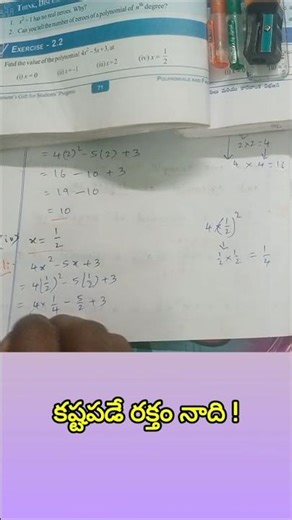 THINK, DIS
1. x² + 1 has no real zeroes. Why?
2. Can you tell the number of zeroes of a polynomial of nᵗʰ degree?
EXERCISE - 2.2
Find the value of the polynomial 4x² - 5x + 3, at
(i) x = 0 (ii) x = -1 (iii) x = 2 (iv) x = 1/2
Government's Gift for Students' Progress 71 POLYNOMIALS AND
= 4(2)² - 5(2) + 3
= 16 - 10 + 3
= 19 - 10
= 10
(iv) x = 1/2
4x² - 5x + 3
= 4(1/2)² - 5(1/2) + 3
= 4 × 1/4 - 5/2 + 3
2×2=4
4 × 4 = 16
4×(1/2)²
1/2 × 1/2 = 1/4
కష్టపడే రక్తం నాది !